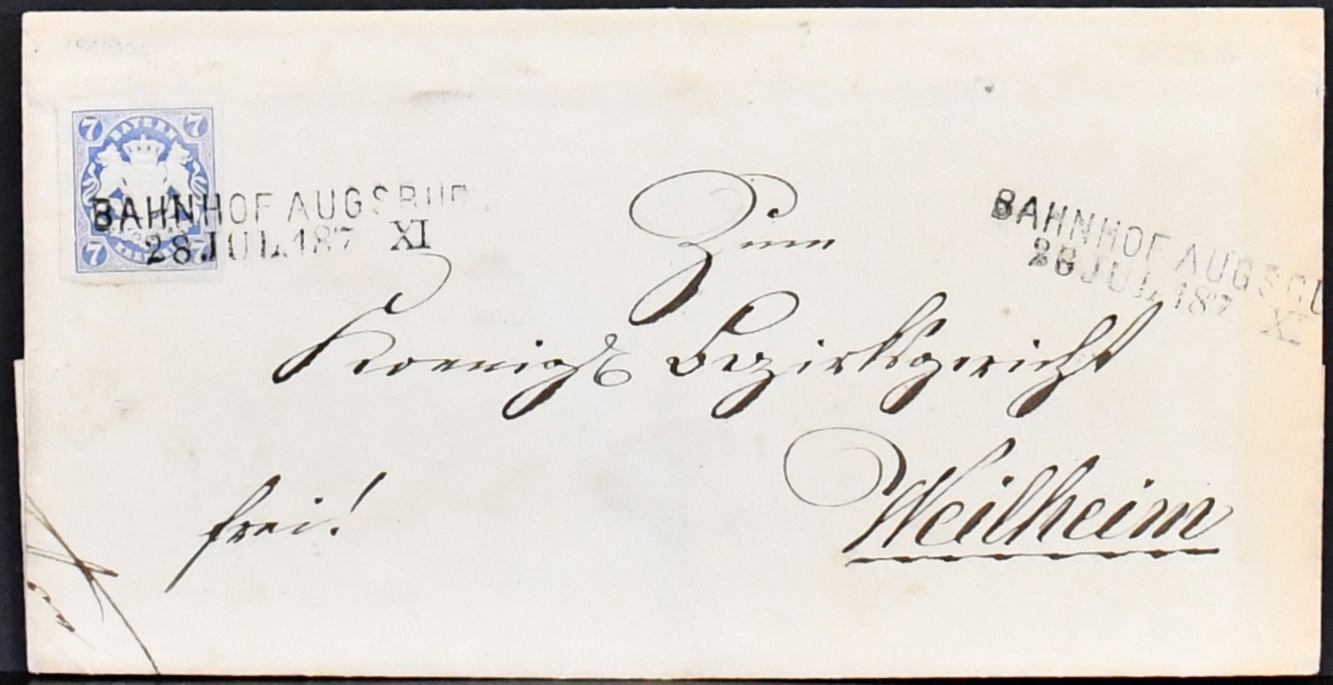 7 7
BAYERN
BAHNHOF AUGSBUR
28 JUL 187 XI
7 7
BAHNHOF AUGSBU
28 JUL 187 XI
Zum
Koenigl Bezirksgericht
Weilheim
frei!